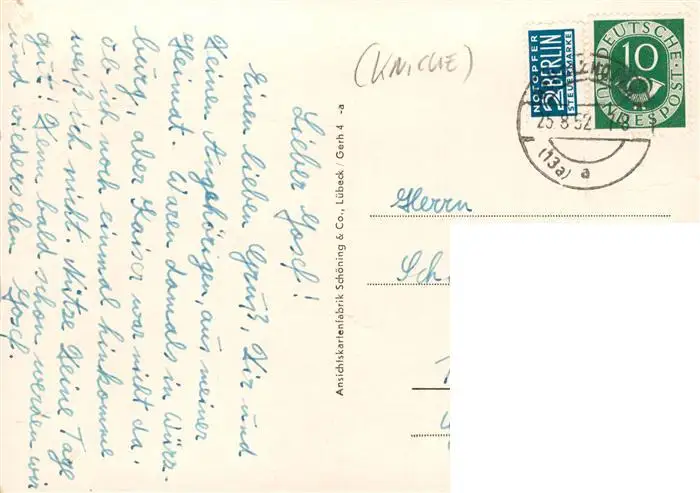 Lieber Josef!
Einen lieben Gruß, Dir und
Deinen Angehörigen, aus meiner
Heimat. Waren damals in Würz-
burg, aber Kaiser war nicht da,
ob ich noch einmal hinkomme
weiß ich nicht. Nütze Deine Tage
gut! Denn bald schon werden wir
uns wiedersehen Josef.
Ansichtskartenfabrik Schöning & Co., Lübeck / Gerh 4 -a
(KNICKE)
NOTOPFER
2 BERLIN
STEUERMARKE
DEUTSCHE
10
BUNDESPOST
25.8.52
(13a) a
Herrn